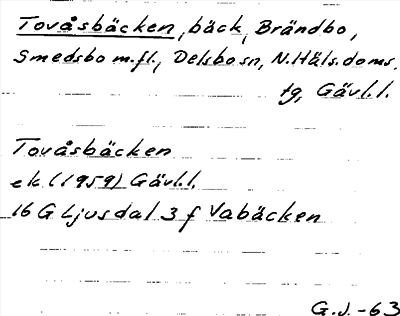 Tovåsbäcken, bäck, Brändbo,
Smedsbo m.fl., Delsbo sn, N. Häls. doms.
tg, Gävl. l.
Tovåsbäcken
ek (1959) Gävl. l.
16 G Ljusdal 3 f Vabäcken
G.J.-63